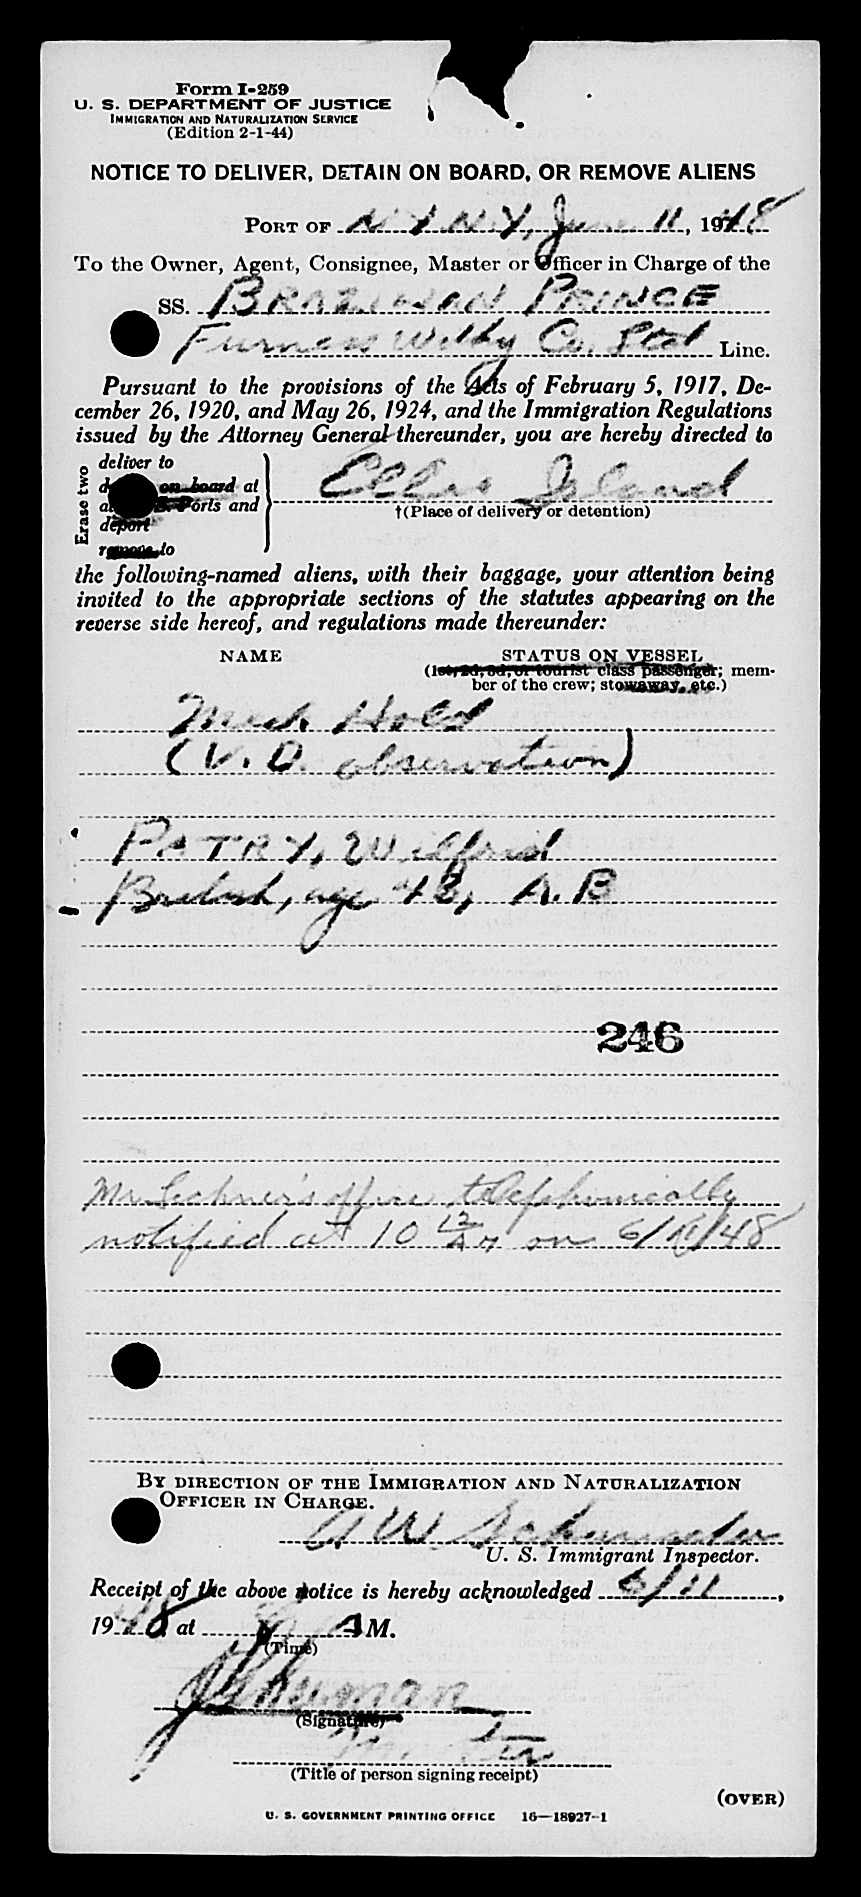 Form I-259
U. S. DEPARTMENT OF JUSTICE
IMMIGRATION AND NATURALIZATION SERVICE
(Edition 2-1-44)
NOTICE TO DELIVER, DETAIN ON BOARD, OR REMOVE ALIENS
PORT OF N Y N Y, June 11, 1948
To the Owner, Agent, Consignee, Master or Officer in Charge of the
SS. BRAZILIAN PRINCE
Furness Withy Co. Ltd Line.
Pursuant to the provisions of the Acts of February 5, 1917, De-
cember 26, 1920, and May 26, 1924, and the Immigration Regulations
issued by the Attorney General thereunder, you are hereby directed to
Erase two
deliver to
on board at
Ports and
deport
remove to
Ellis Island
†(Place of delivery or detention)
the following-named aliens, with their baggage, your attention being
invited to the appropriate sections of the statutes appearing on the
reverse side hereof, and regulations made thereunder:
NAME STATUS ON VESSEL
(1st, 2d, 3d, or tourist class passenger; mem-
ber of the crew; stowaway, etc.)
Med. Hold
(V. D. observation)
PATRY, Wilfrid
British, age 48, A. B
246
Mr. office telephonically
notified at 10 12 AM on 6/11/48
BY DIRECTION OF THE IMMIGRATION AND NATURALIZATION
OFFICER IN CHARGE.
A W
U. S. Immigrant Inspector.
Receipt of the above notice is hereby acknowledged 6/11,
1948 at AM.
(Time)
(Signature)
Master
(Title of person signing receipt)
(OVER)
U. S. GOVERNMENT PRINTING OFFICE 16—18927-1